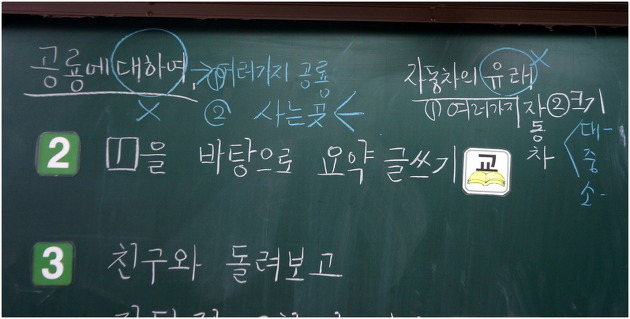 공룡에 대하여 → ① 여러가지 공룡
x ② 사는 곳 <
자동차의 유래 x
① 여러가지 자동차 ② 크기
대-
중-
소-
2 1을 바탕으로 요약 글쓰기 교
3 친구와 돌려보고